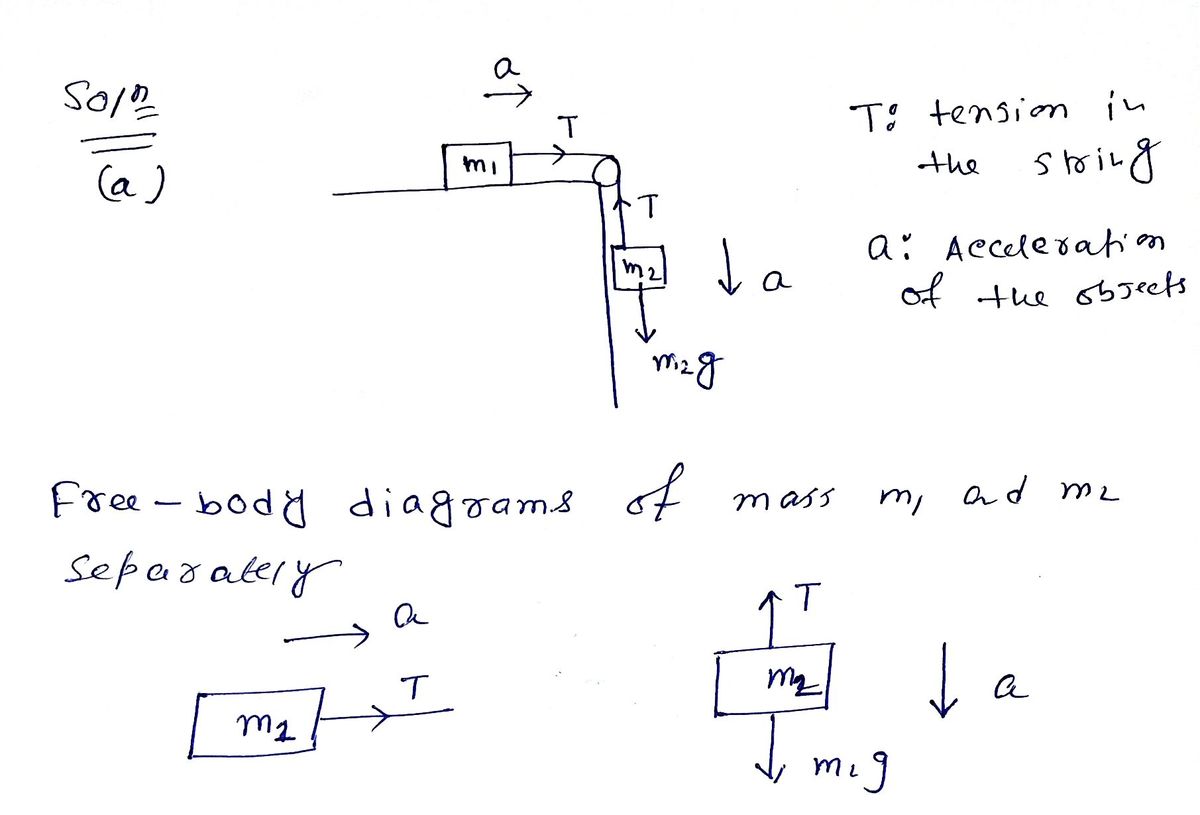 Sol<u>n</u>
(a)
a
T
m1
T
m2
a
m2g
T: tension in
the string
a: Acceleration
of the objects
Free-body diagrams of mass m1 and m2
separately
a
T
m1
T
m2
a
m2g